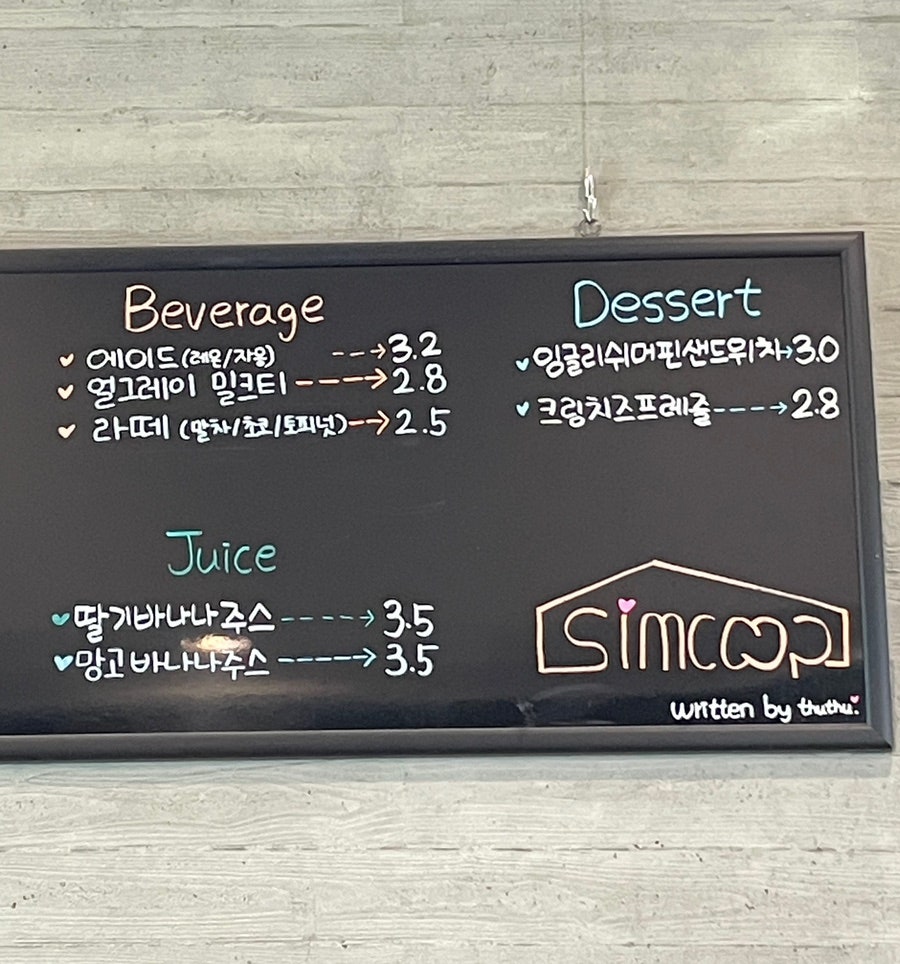 Beverage
에이드(레몬/자몽) --→3.2
얼그레이 밀크티 ---→2.8
라떼 (말차/초코/토피넛)--→2.5
Juice
딸기바나나주스-----→ 3.5
망고바나나주스----→ 3.5
Dessert
잉글리쉬머핀샌드위치→3.0
크림치즈프레즐----→2.8
simcoop
written by thuthu.